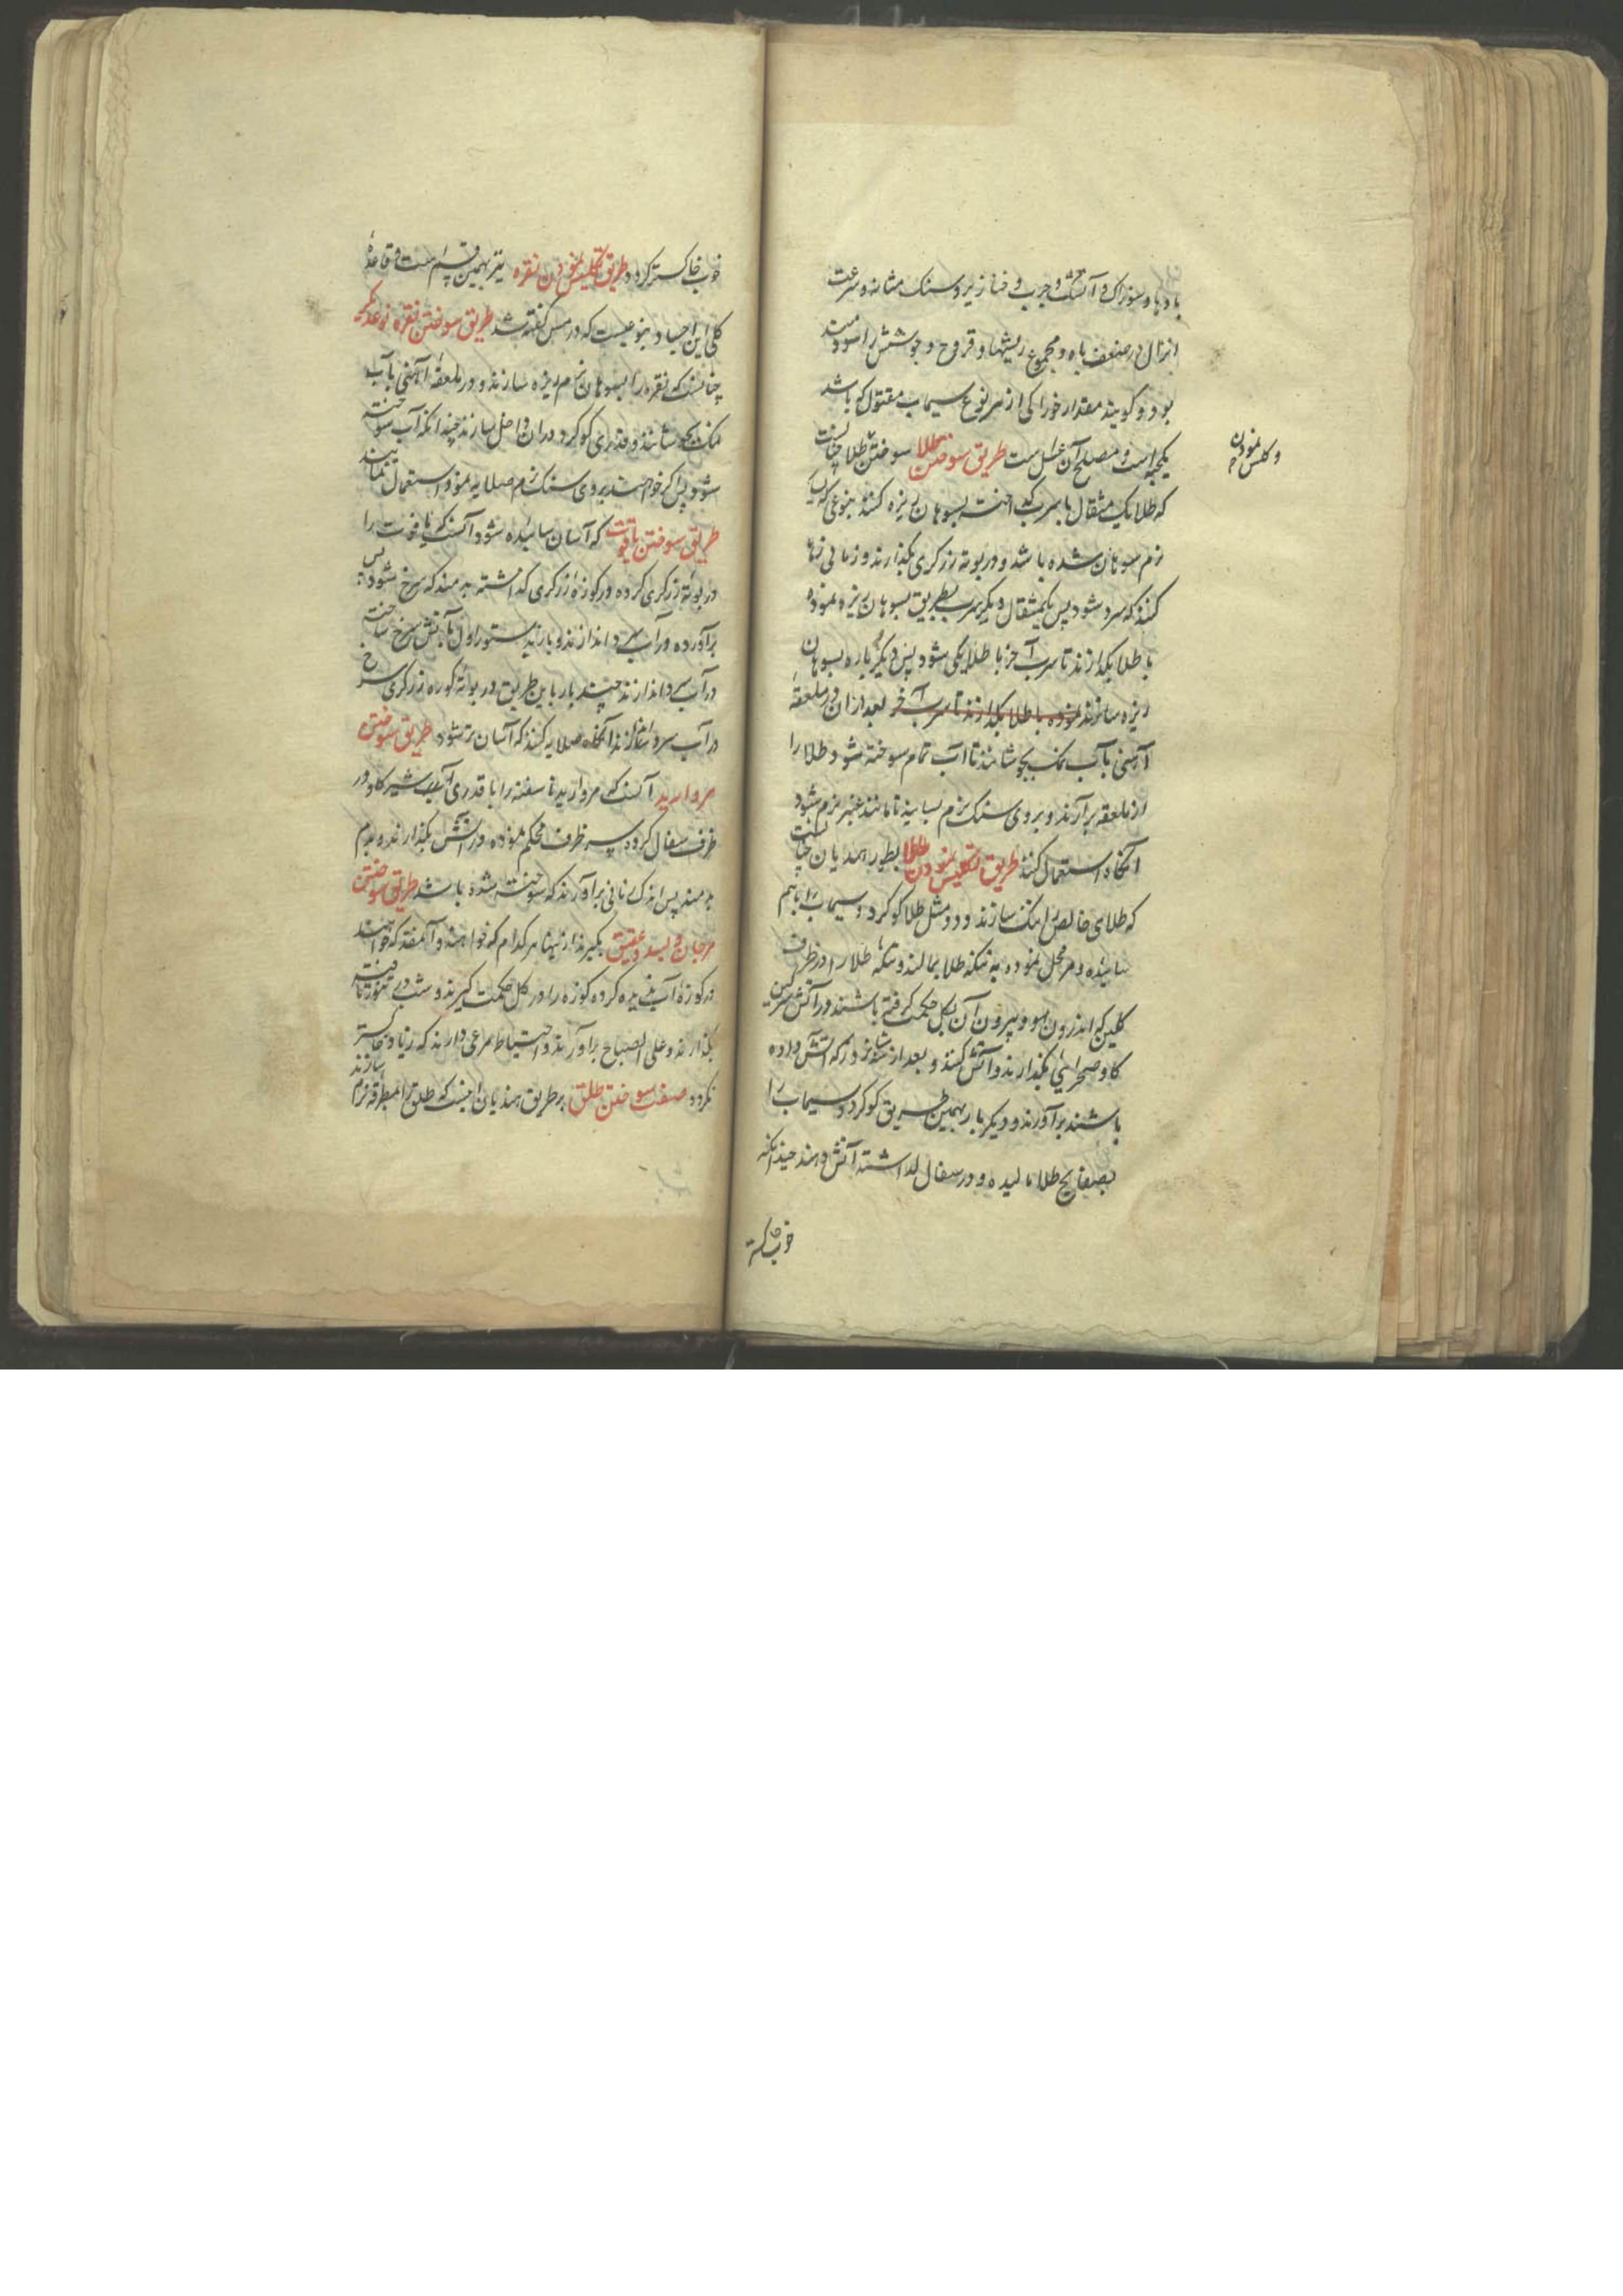 بادها و سوزاک و آتشک و جرب و خنازیر و سنک مثانه و سرعت
انزال و ضعف باه و مجموع ریشها و قروح و جوشش را سودمند
بود و کویند مقدار خوراکی از هر نوع سیماب مقتول که باشد
یکحبه است و مصلح آن عسل است طریق سوختن طلا سوختن طلا چنانست
و کلس نمودن
که طلا یک مثقال با سرب کداخته بسوهان ریزه کنند بنوعی که
نرم سوهان شده باشد و در بوته زرکری بکذارند و زمانی رها
کنند که سرد شود پس یکمثقال دیکر سرب بطریق بسوهان ریزه نموده
با طلا بکدازند تا سرب آخر با طلا یکی شود پس دیکر باره بسوهان
ریزه سازند نموده با طلا بکدازند تا سرب آخر بعد از ان در ملعقهٔ
آهنی با آب نمک بجوشانند تا آب تمام سوخته شود طلا را
از ملعقه برآرند و بروی سنک نرم بسایند تا مانند غبار نرم شود
آنکاه استعمال کنند طریق تکلیس نمودن طلا بطور هندیان چنانست
که طلای خالص را تنک سازند و دو مثل طلا کوکرد و سیماب باهم
سائیده و مرحل نموده به تنکه طلا بمالند و تنکه طلا را در ظرف
کلین که اندرون او و بیرون آن بکل حکمت کرفته باشند در آتش سرکین
کاو صحرایی بکذارند و آتش کنند و بعد از شبانروز که آتش داده
باشند برآورند و دیکر بار بهمین طریق کوکرد و سیماب را
بصفایح طلا مالیده و در سفال کذاشته آتش دهند چندانکه
خوب خاکستر
خوب خاکستر کردد طریق تکلیس نمودن نقره نیز بهمین قسم است و قاعدهٔ
کلی این اجساد بنوعیست که در مس کفته شد طریق سوختن نقره نوعدیکر
چنانست که نقره را بسوهان نرم ریزه سازند و در ملعقهٔ آهنی با آب
نمک بجوشانند و قدری کوکرد در ان داخل سازند چندانکه آب سوخته
شود پس اکر خواهند بروی سنک نرم صلایه نموده استعمال نمایند
طریق سوختن یاقوت که آسان سائیده شود آنست که یاقوت را
در بوتهٔ زرکری کرده در کوزهٔ زرکری کذاشته بدمند که سرخ شود پس
برآورده در آب سرد اندازند و باز بدستور اول بآتش سرخ ساخته
در آب سرد اندازند چند بار باین طریق در بوتهٔ کوره زرکری سرخ
در آب سرد اندازند آنکاه صلایه کنند که آسان تر شود طریق سوختن
مروارید آنست که مروارید ناسفته را با قدری آب شیر کاو در
ظرف سفال کرده سر ظرف محکم نموده در آتش بکذارند و بدم
بدمند پس اندک زمانی برآورند که سوخته شده باشد طریق سوختن
مرجان و بسد و عقیق بکیرند از اینها هر کدام که خواهند و آنمقدار که خواهند
در کوزهٔ آب ندیده کرده کوزه را در کل حکمت کیرند و شب در تنور تافته
بکذارند و علی الصباح برآورند و احتیاط مرعی دارند که زیاد خاکستر
نکردد صفت سوختن طلق بر طریق هندیان اینست که طلق را بمطرقه نرم
سازند